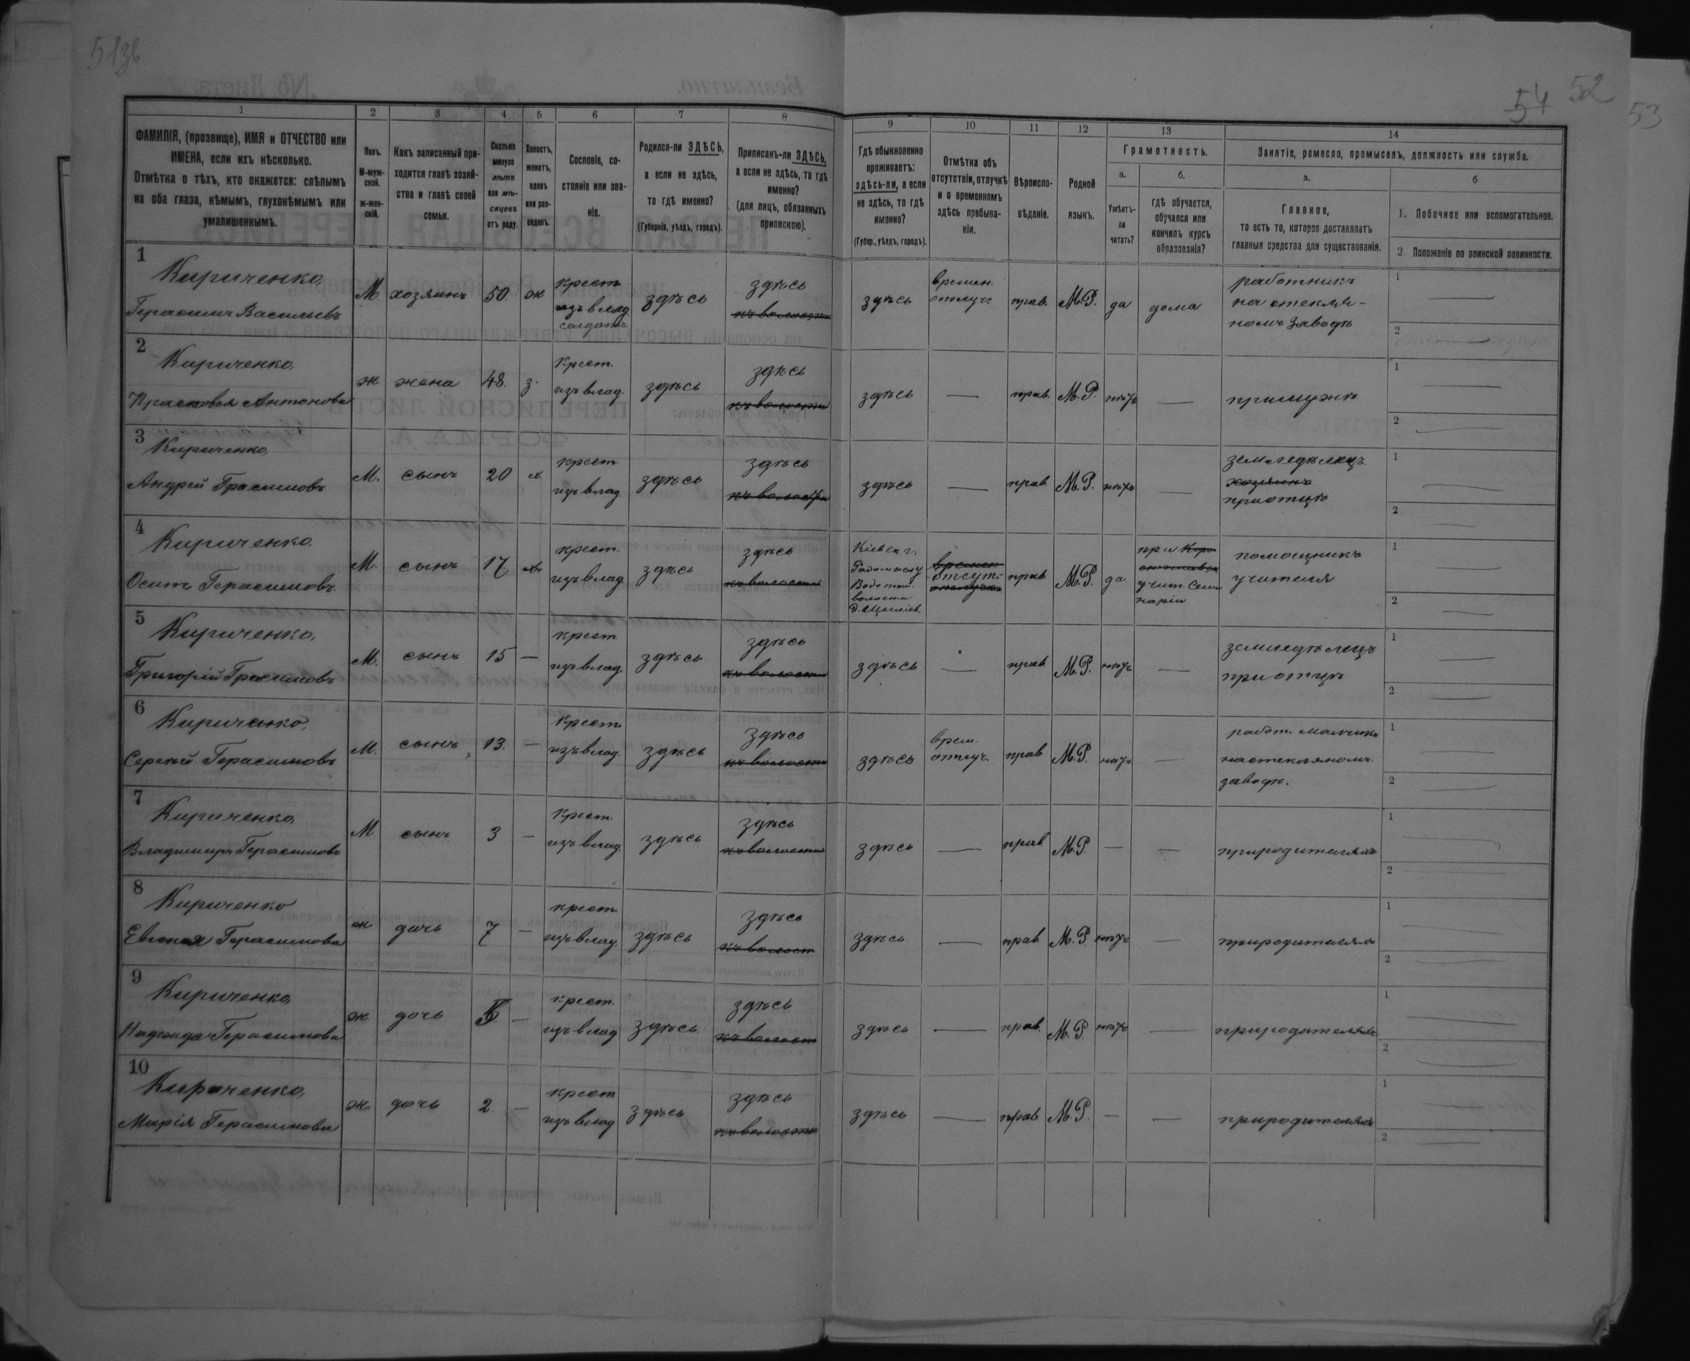 54 52
53
1 2 3 4 5 6 7 8 9 10 11 12 13 14
ФАМИЛІЯ, (прозвище), ИМЯ и ОТЧЕСТВО или
ИМЕНА, если ихъ нѣсколько.
Отмѣтка о тѣхъ, кто окажется: слѣпымъ
на оба глаза, нѣмымъ, глухонѣмымъ или
умалишеннымъ.
Полъ.
М-муж-
ской.
ж-жен-
скій.
Какъ записанный при-
ходится главѣ хозяй-
ства и главѣ своей
семьи.
Сколько
минуло
лѣтъ
или мѣ-
сяцевъ
отъ роду.
Холостъ,
женатъ,
вдовъ
или раз-
веденъ.
Сословіе, со-
стояніе или зва-
ніе.
Родился-ли ЗДѢСЬ,
а если не здѣсь,
то гдѣ именно?
(Губернія, уѣздъ, городъ).
Приписанъ-ли ЗДѢСЬ,
а если не здѣсь, то гдѣ
именно?
(для лицъ, обязанныхъ
припискою).
Гдѣ обыкновенно
проживаетъ:
здѣсь-ли, а если
не здѣсь, то гдѣ
именно?
(Губер., уѣздъ, городъ).
Отмѣтка объ
отсутствіи, отлучкѣ
и о временномъ
здѣсь пребыва-
ніи.
Вѣроиспо-
вѣданіе.
Родной
языкъ.
Грамотность.
а.
Умѣетъ-
ли
читать?
б.
гдѣ обучается,
обучался или
кончилъ курсъ
образованія?
Занятіе, ремесло, промыселъ, должность или служба.
а.
Главное,
то есть то, которое доставляетъ
главныя средства для существованія.
б
1. Побочное или вспомогательное.
2. Положеніе по воинской повинности.
1
Кириченко,
Герасимъ Васильевъ
М. хозяинъ 50 ж
крест
изъ влад
солдатъ
здѣсь
здѣсь
здѣсь
времен.
отлуч.
прав. М.Р. да дома
работникъ
на стеклян-
номъ заводѣ
1
2
2
Кириченко,
Прасковья Антонова
ж жена 48. з.
Крест.
изъ влад.
здѣсь
здѣсь
здѣсь — прав. М.Р. нѣтъ —
при мужѣ
1
2
3
Кириченко,
Андрей Герасимовъ
М. сынъ 20 х
крест
изъ влад.
здѣсь
здѣсь
здѣсь — прав М.Р. нѣтъ —
земледѣлецъ
хозяинъ
при отцѣ
1
2
4
Кириченко.
Осипъ Герасимовъ
М. сынъ 17
крест.
изъ влад.
здѣсь
здѣсь
Кіевск г.
волости
отсут-
прав М.Р. да
при
учит. Семи
наріи
помощникъ
учителя
1
2
5
Кириченко,
Григорій Герасимовъ
М. сынъ 15 —
крест
изъ влад.
здѣсь
здѣсь
здѣсь — прав М.Р. нѣтъ —
земледѣлецъ
при отцѣ
1
2
6
Кириченко,
Сергѣй Герасимовъ
М. сынъ 13. —
Крест
изъ влад.
здѣсь
здѣсь
здѣсь
врем.
отлуч.
прав М.Р. нѣтъ —
работ. мальчикъ
на стекляномъ
заводѣ.
1
2
7
Кириченко,
Владимиръ Герасимовъ
М сынъ 3 —
Крест.
изъ влад
здѣсь
здѣсь
здѣсь — прав М.Р. — —
при родителяхъ
1
2
8
Кириченко
Евгенія Герасимова
ж дочь 7 —
крест
изъ влад.
здѣсь
здѣсь
здѣсь — прав М.Р нѣтъ —
при родителяхъ
1
2
9
Кириченко,
Надежда Герасимова
ж дочь —
крест.
изъ влад
здѣсь
здѣсь
здѣсь — прав. М.Р. нѣтъ —
при родителяхъ
1
2
10
Кириченко,
Марія Герасимова
ж. дочь 2 —
крест
изъ влад
здѣсь
здѣсь
здѣсь — прав М.Р. — —
при родителяхъ
1
2